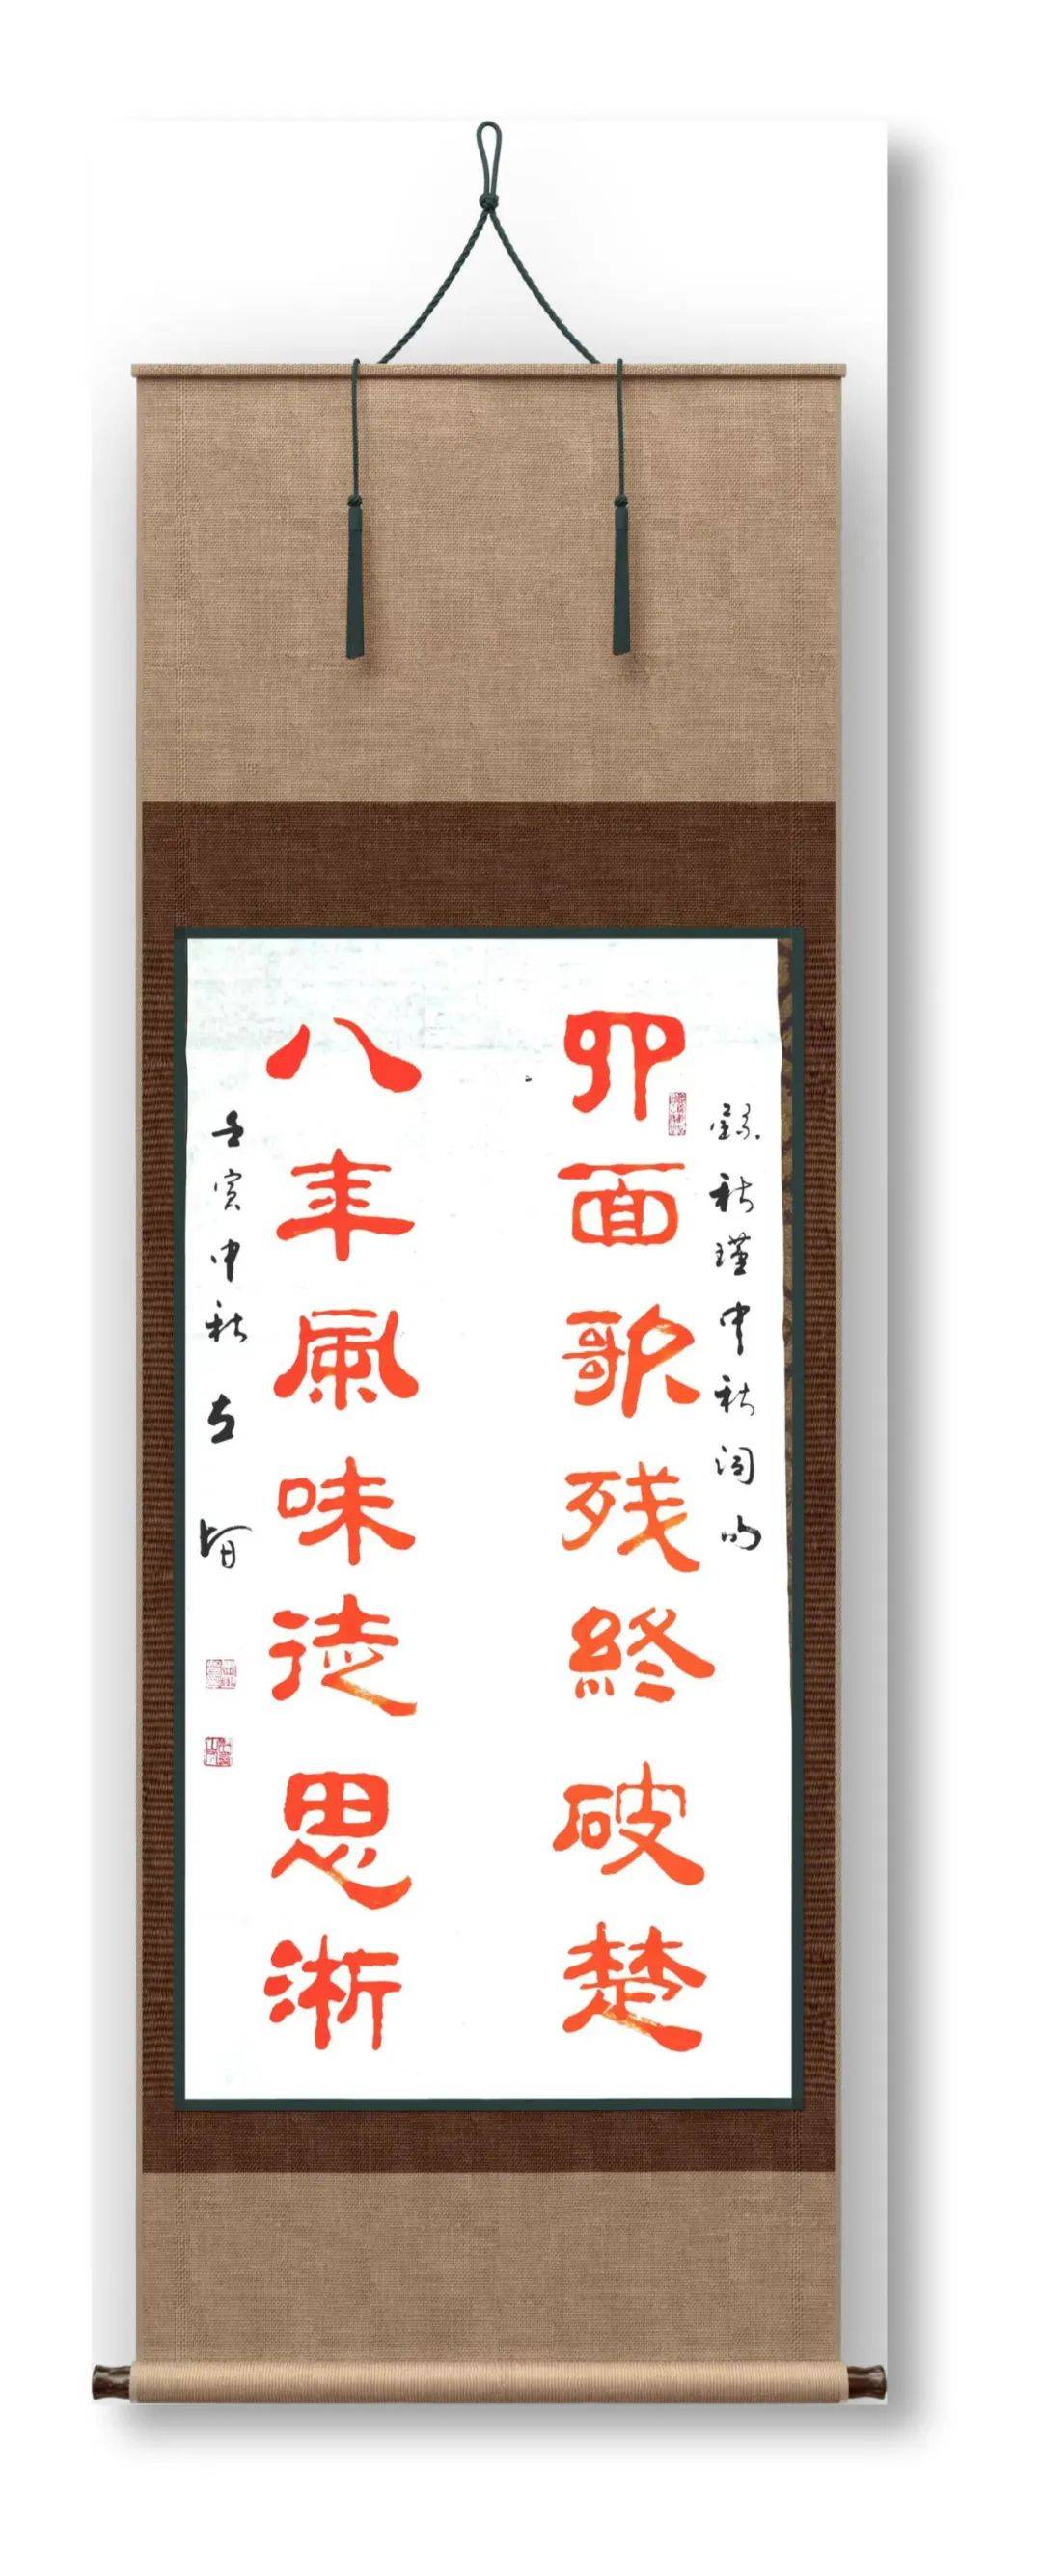 錄秋瑾中秋詞句
四面歌残終破楚
八年風味徒思浙
壬寅中秋